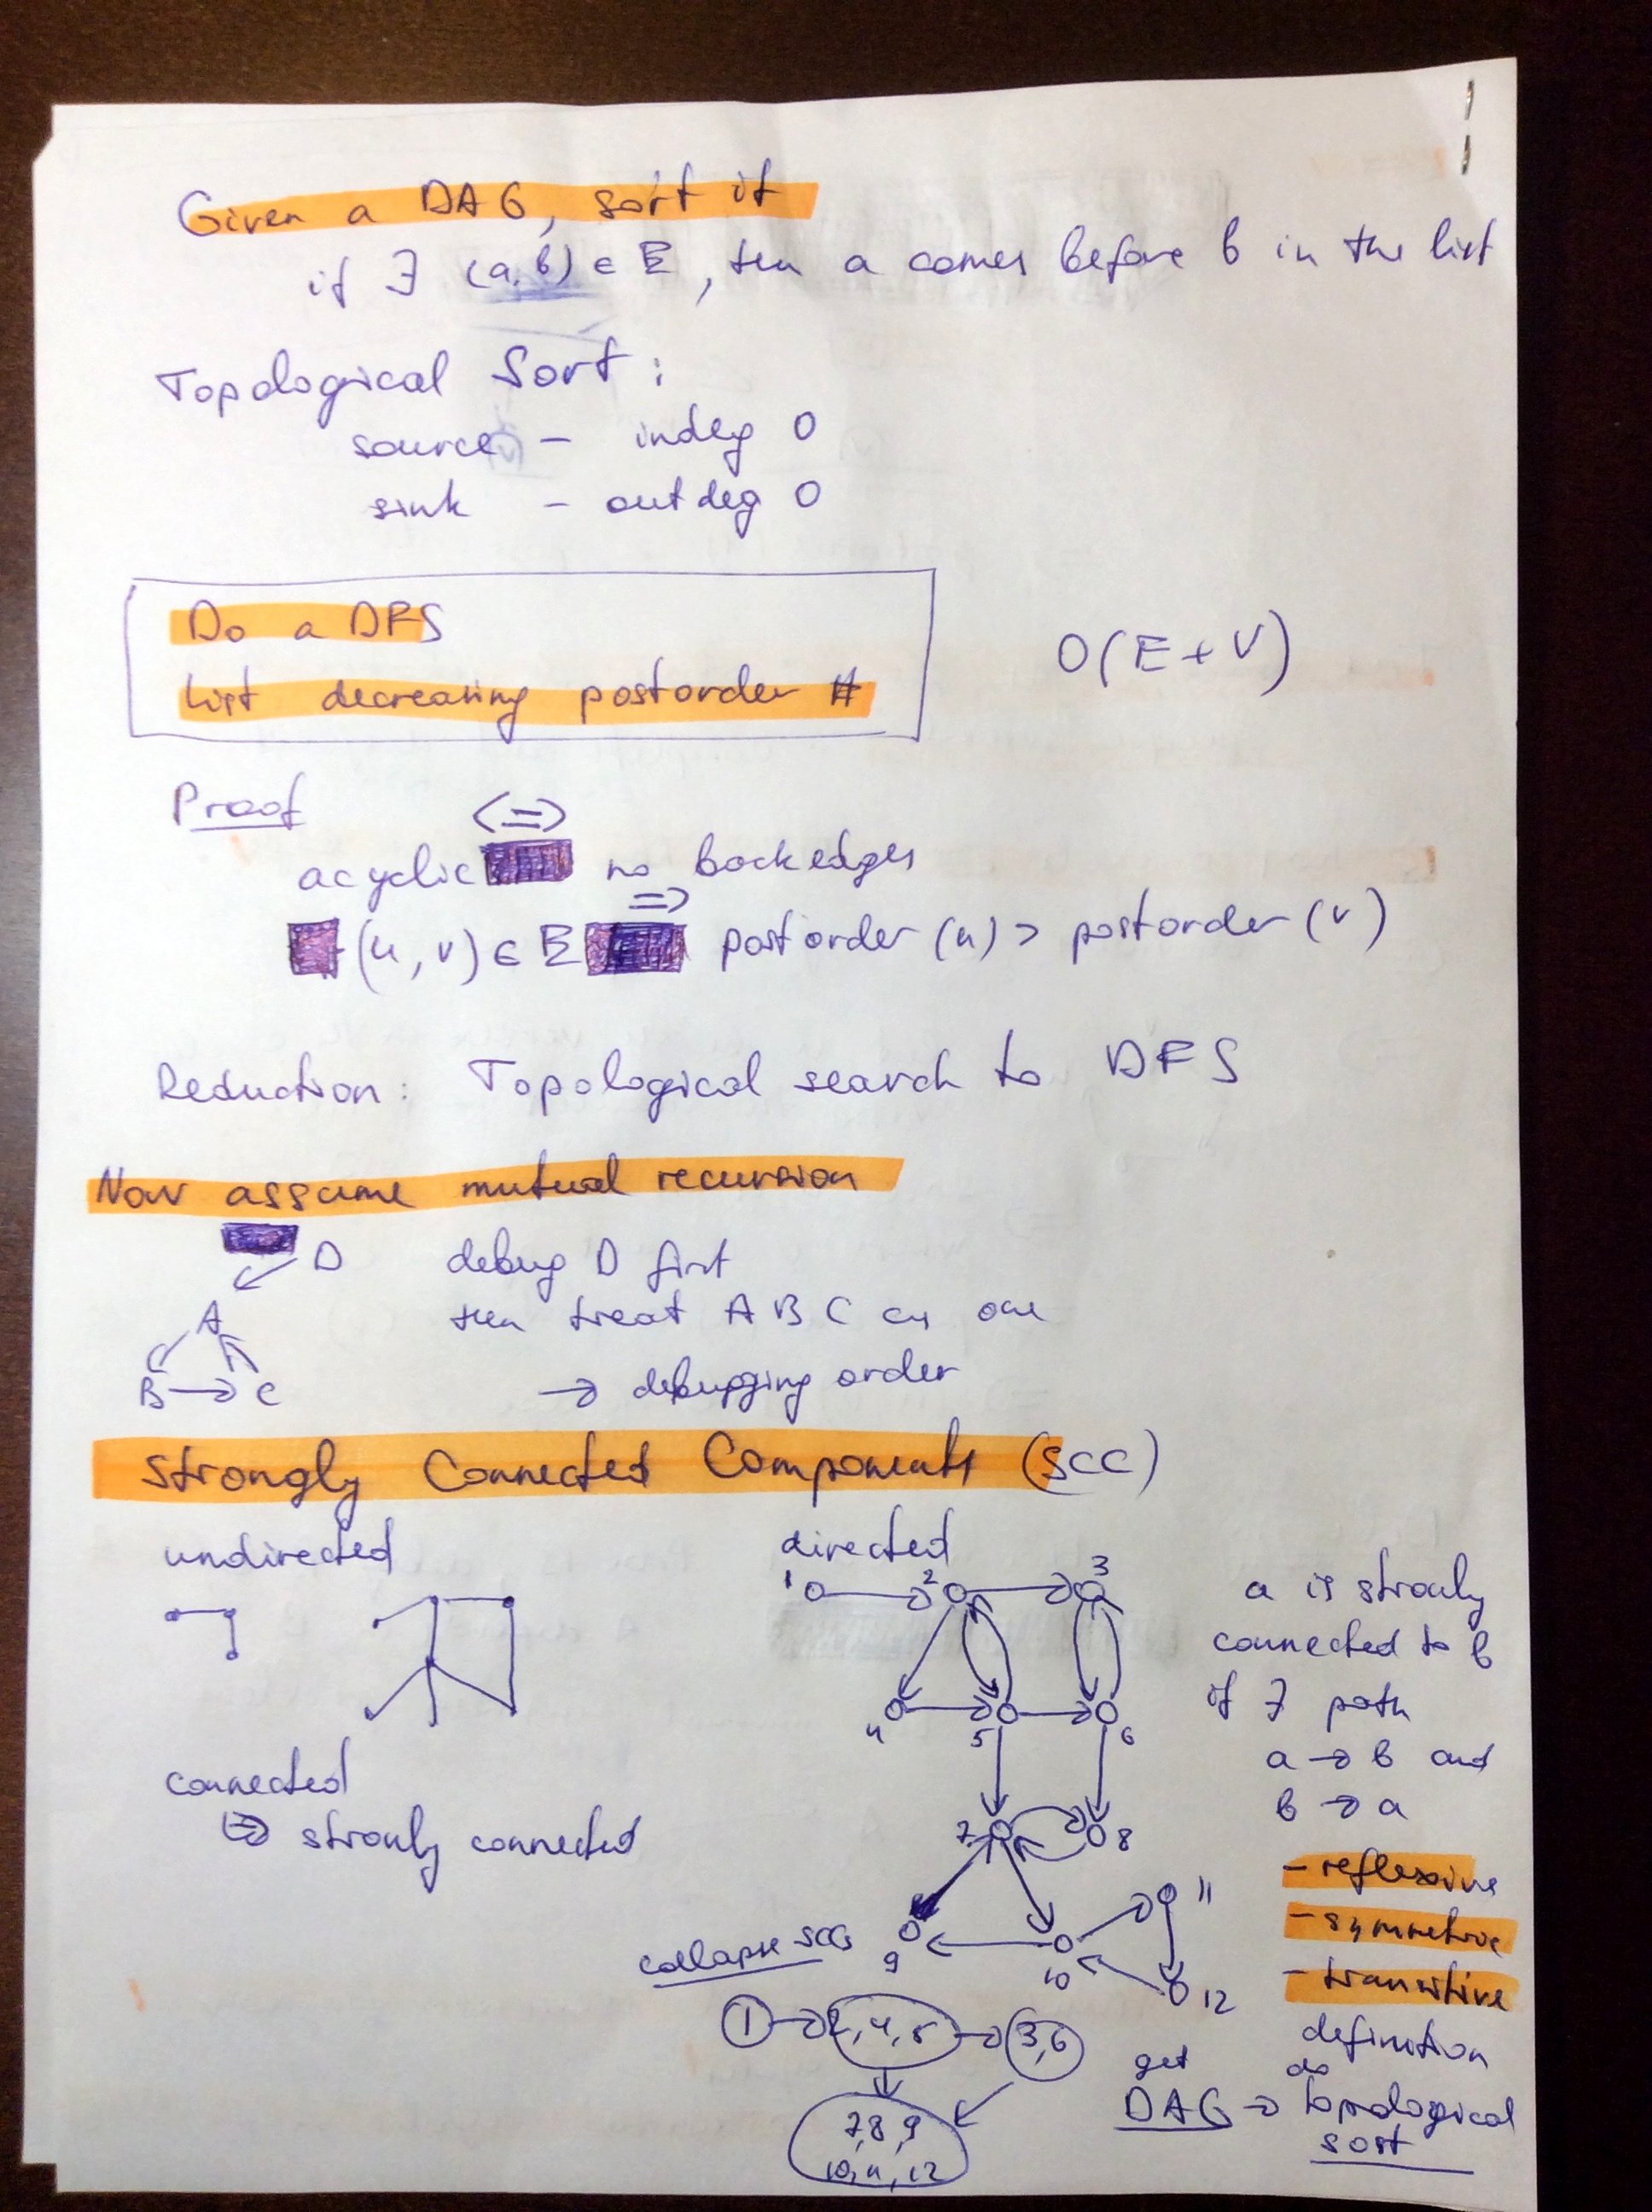 Given a DAG, sort it
if ∃ (a,b) ∈ E, ten a comes before b in the list
Topological Sort:
source(v) - indeg 0
sink - outdeg 0
Do a DFS
List decreasing postorder #
O(E+V)
Proof
<=>
acyclic no backedges
=>
(u,v) ∈ E postorder (u) > postorder (v)
Reduction: Topological search to DFS
Now assume mutual recursion
D debug D first
A then treat A B C as one
B → C → debugging order
Strongly Connected Components (SCC)
undirected
connected
⇒ stronly connected
directed
1 2 3
4 5 6
7 8
9 10 11 12
a is stronly
connected to b
if ∃ path
a → b and
b → a
- reflexive
- symmetric
- transitive
definition
collapse SCCs
1 → 2,4,5 → 3,6
7,8,9
10,11,12
get do
DAG → topological
sort